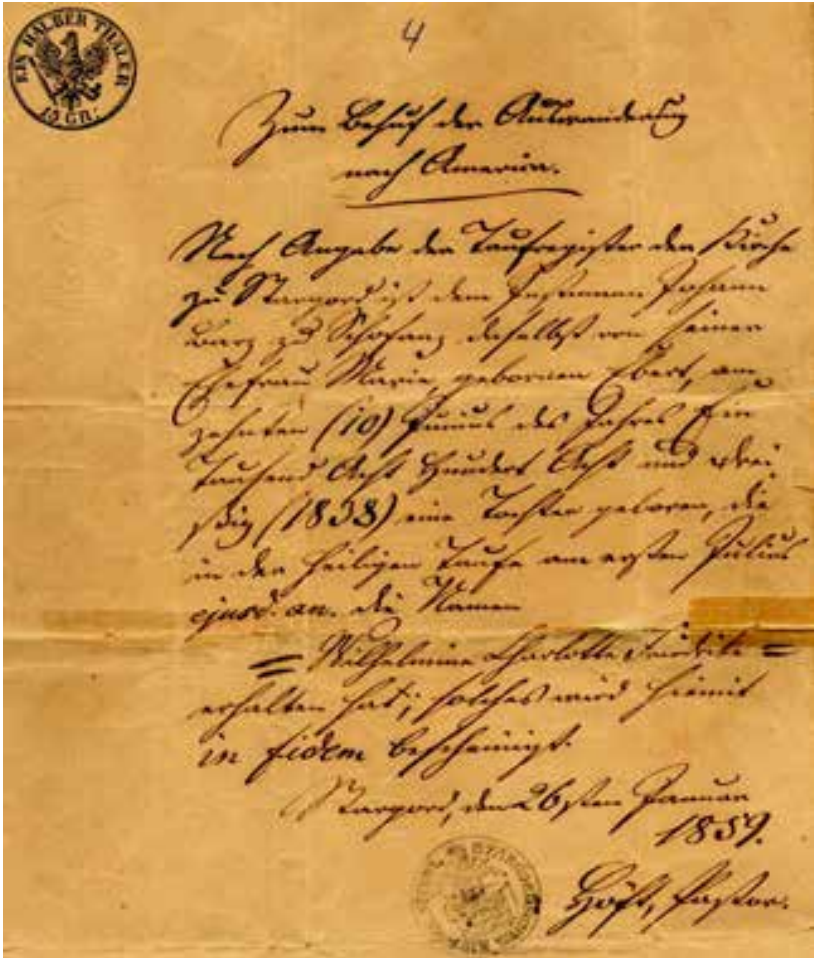 EIN HALBER THALER
15 GR:
4
Zum Behuf der Auswanderung
nach America.
Nach Angabe der Taufregister der Kirche
zu Stargord ist dem Johann
zu daselbst von seiner
Ehefrau Marie, gebornen Ebert, am
zehnten (10) Junius des Jahres Ein
Tausend Acht Hundert Acht und drei
ßig (1838) eine Tochter geboren, die
in der heiligen Taufe am ersten Julius
ejusd. an. die Namen
= Wilhelmine Charlotte Friedrike =
erhalten hat; solches wird hiemit
in fidem bescheinigt.
Stargord, den 26sten Januar
1859.
Pastor.